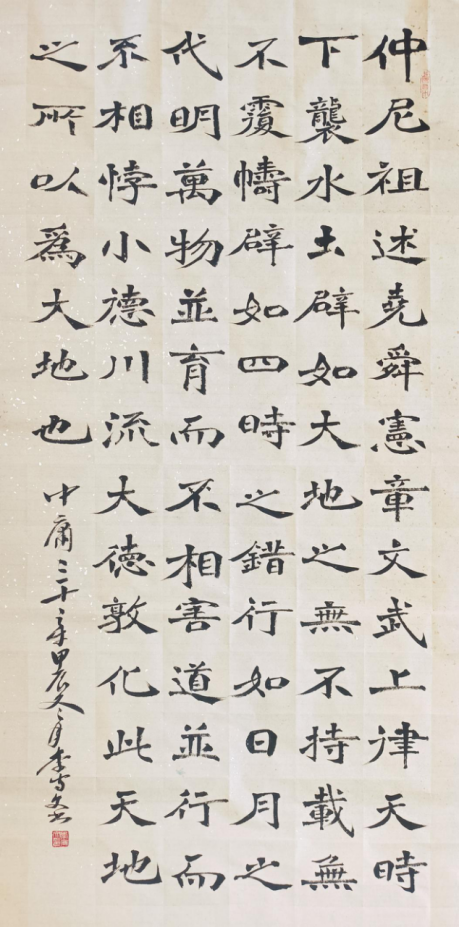 仲尼祖述堯舜憲章文武上律天時
下襲水土辟如大地之無不持載無
不覆幬辟如四時之錯行如日月之
代明萬物並育而不相害道並行而
不相悖小德川流大德敦化此天地
之所以爲大地也
中庸三十章甲辰冬月李